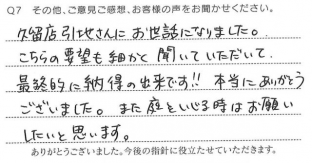 Q7 その他、ご意見ご感想、お客様の声をお聞かせください。
久留店引地さんにお世話になりました。
こちらの要望も細かく聞いていただいて、
最終的に納得の出来です!! 本当にありがとう
ございました。また庭をいじる時はお願い
したいと思います。
ありがとうございました。今後の指針に役立たせていただきます。